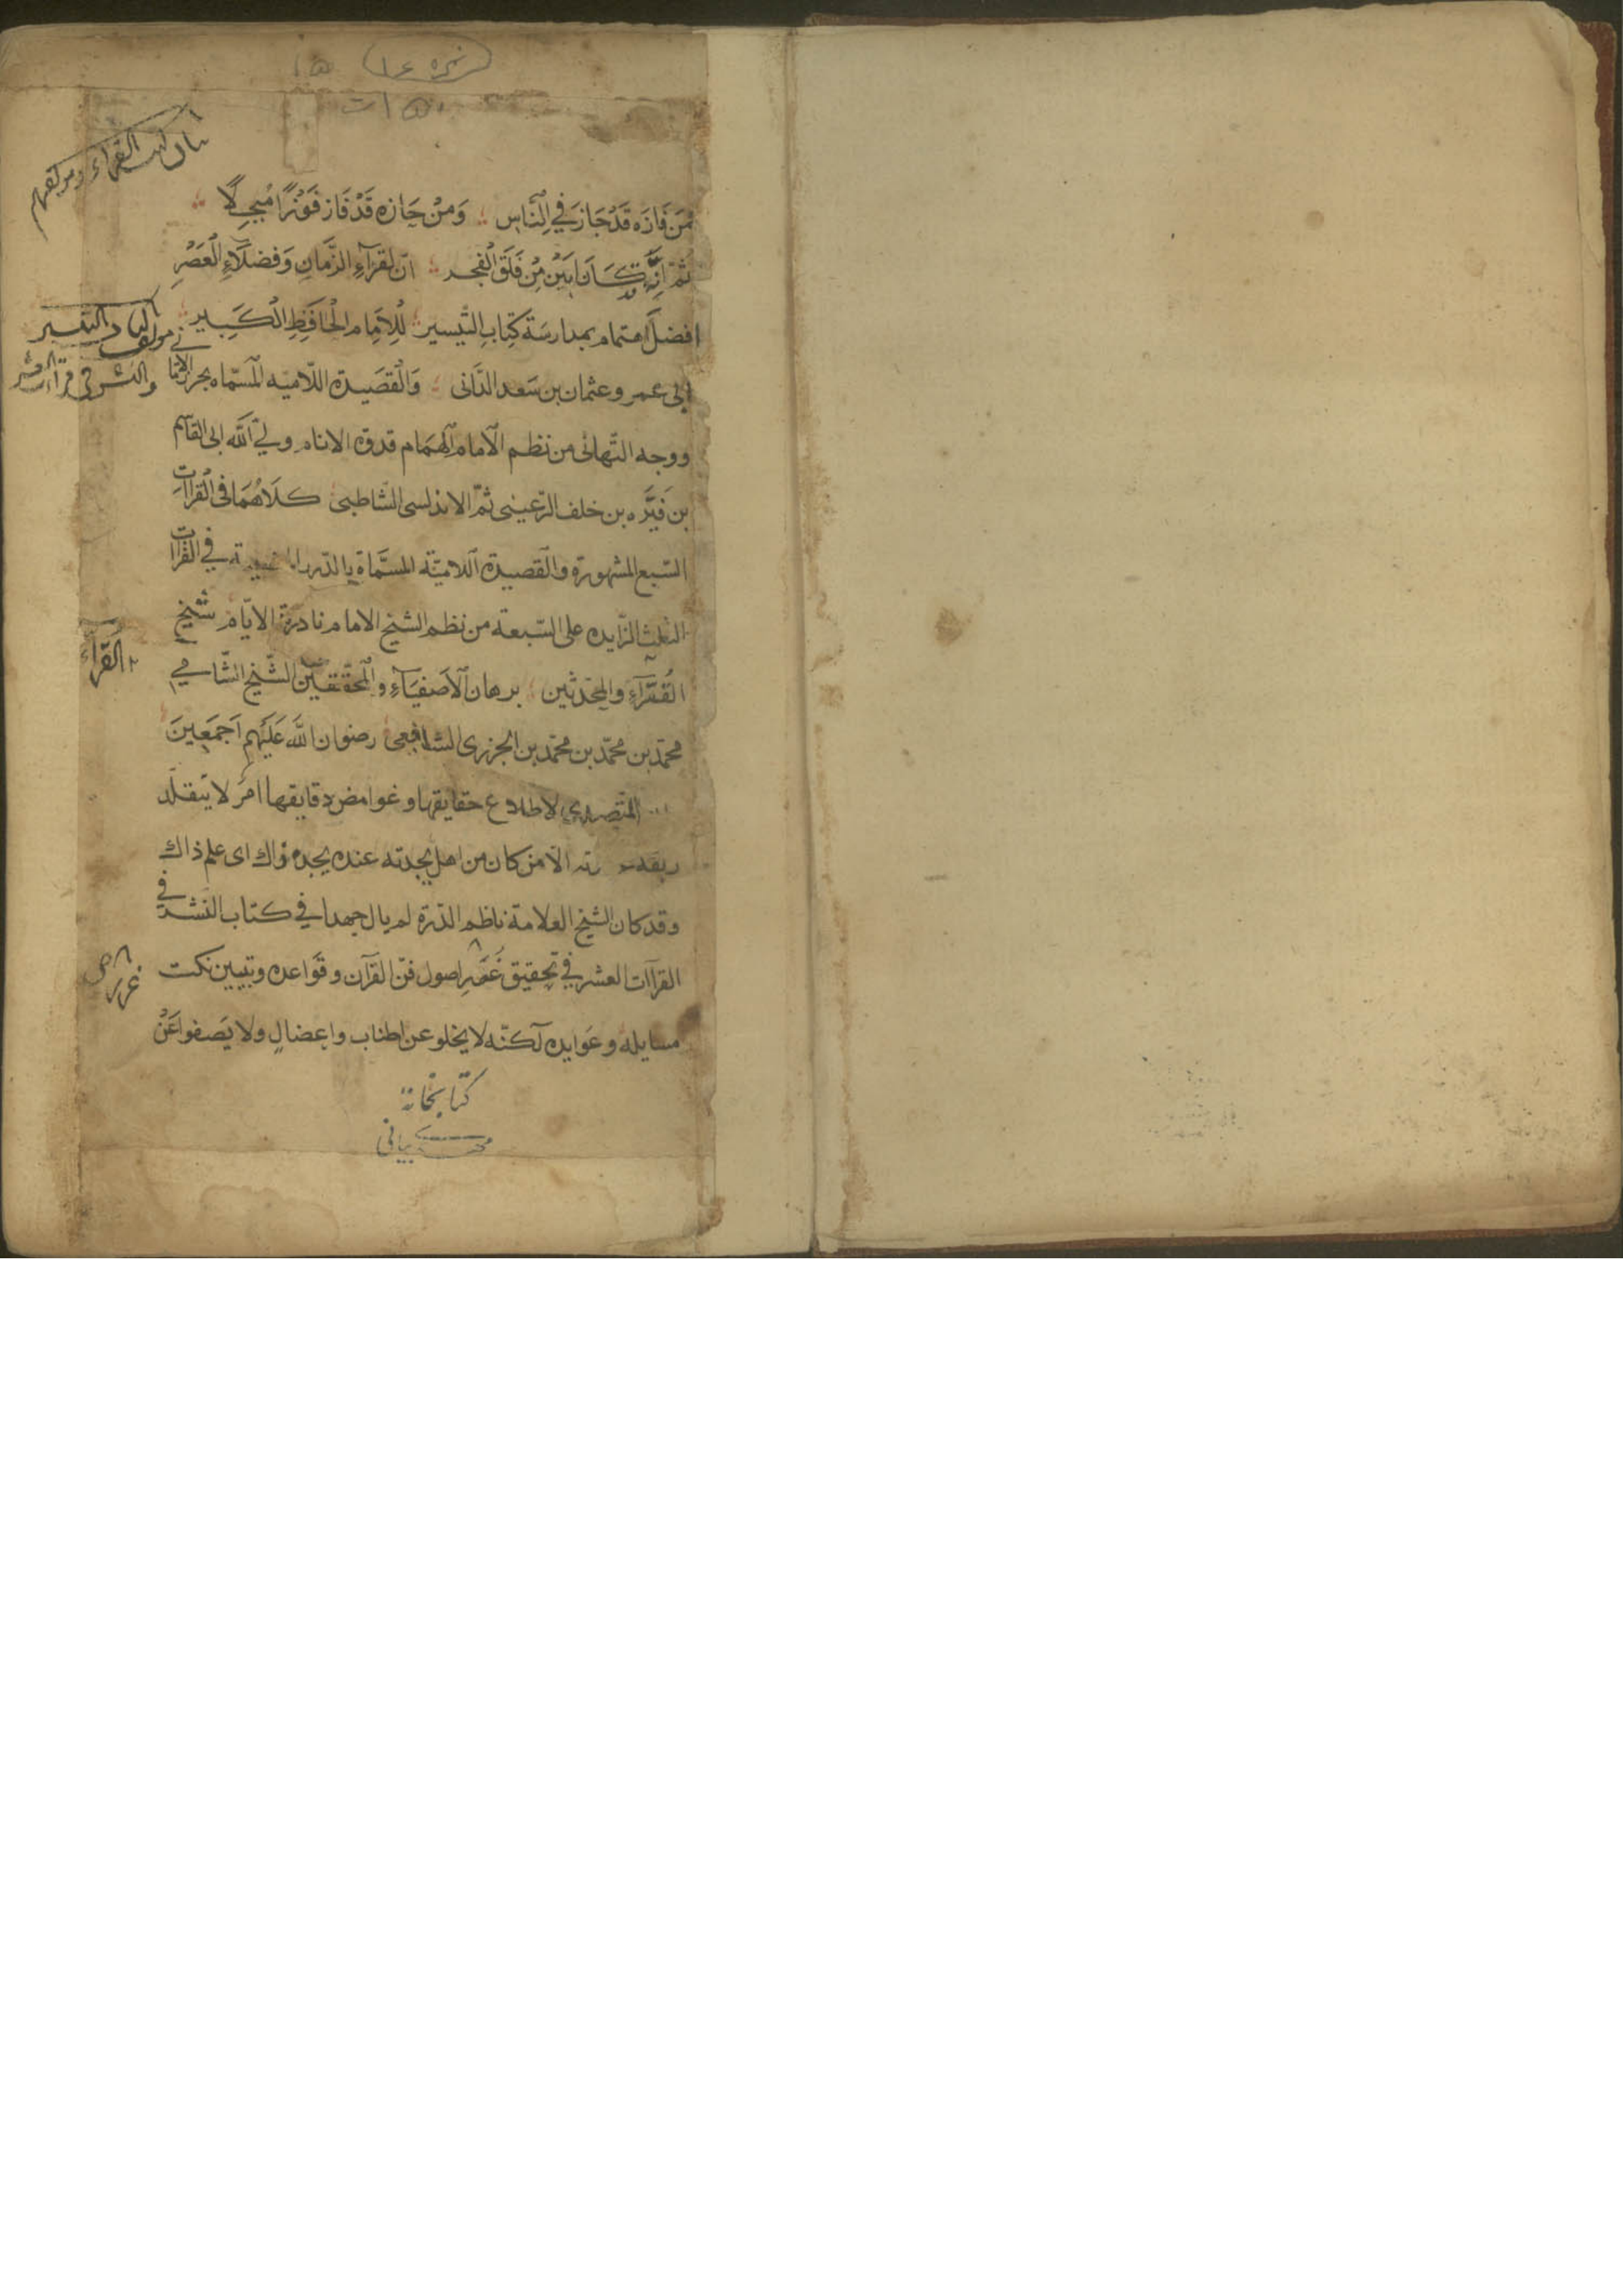 نمره ١٤
فمَن فَازَه قَدْ جَازَ فِي النَّاسِ وَمَنْ حَازه قَدْ فَاز فَوْزًا مُبجلًا
ثُمَّ اِنَّه قد كَانَ اَبَيْن مِنْ فَلَقَ الْفَجر انّ لقرّآءِ الزَّمانِ وَفضلَاءِ الْعَصْرِ
افضلَ اهتمام بمدارسَة كِتابِ التَّيسير لِلْاِمَام الْحَافِظِ الْكَبير
ابى عمر و عثمان بن سَعد الدَّانى وَالْقَصَيدة اللّاميه المسَمّاه بحرز الامَا
ووجه التَّهانى من نظم الْامام الهمَام قدوة الانام ولي اَللّه ابى القاسم
بن فَيَّره بن خلف الرّعينى ثمّ الاندلسى الشاطبى كلاهُمَا فى القراات
السّبع المشهورة والْقصيدة اللاميّة المسَّماة بالدّرة في القراات
الثلث الزّايدة على السّبعة من نظم الشيخ الامام نادرة الايّام شيخ
الْقُرَّآءِ والمحدّثين برهان الْاصفيَآءِ والْمحقّقيْن الشّيخ الشّامي
محمّد بن محمّد بن محمّد بن الجزرى الشافعى رضوان اللّه عَلَيْهم اَجمَعِينَ
المتصدى لاطلاع حقايقها و غوامض دقايقها امرٌ لا يتقلّد
الّا من كان من اهل بجدته عنده بجدة ذاك اى علم ذاك
وقد كان الشيخ العلامة ناظم الدّرة لم يال جهدا في كتاب النّشر في
القراات العشر في تحقيق اصول فنّ القرآن و قَواعده و تبيين نكت
مسايله و عَوايده لكنّه لا يخلو عن اطناب واعضالٍ ولا يَصفوا عَنْ
القرّاء
غرر
كتابخانهٔ
بيانى